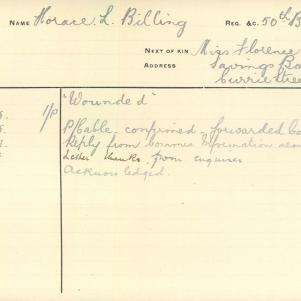 NAME Horace. L. Billing REG. &C. 50th B
NEXT OF KIN Miss Florence
ADDRESS Savings Ba
Currie Stree
1/p "Wounded"
P/Cable confirmed, forwarded
Reply from Common Information
Letter thanks from enquirer
acknowledged.